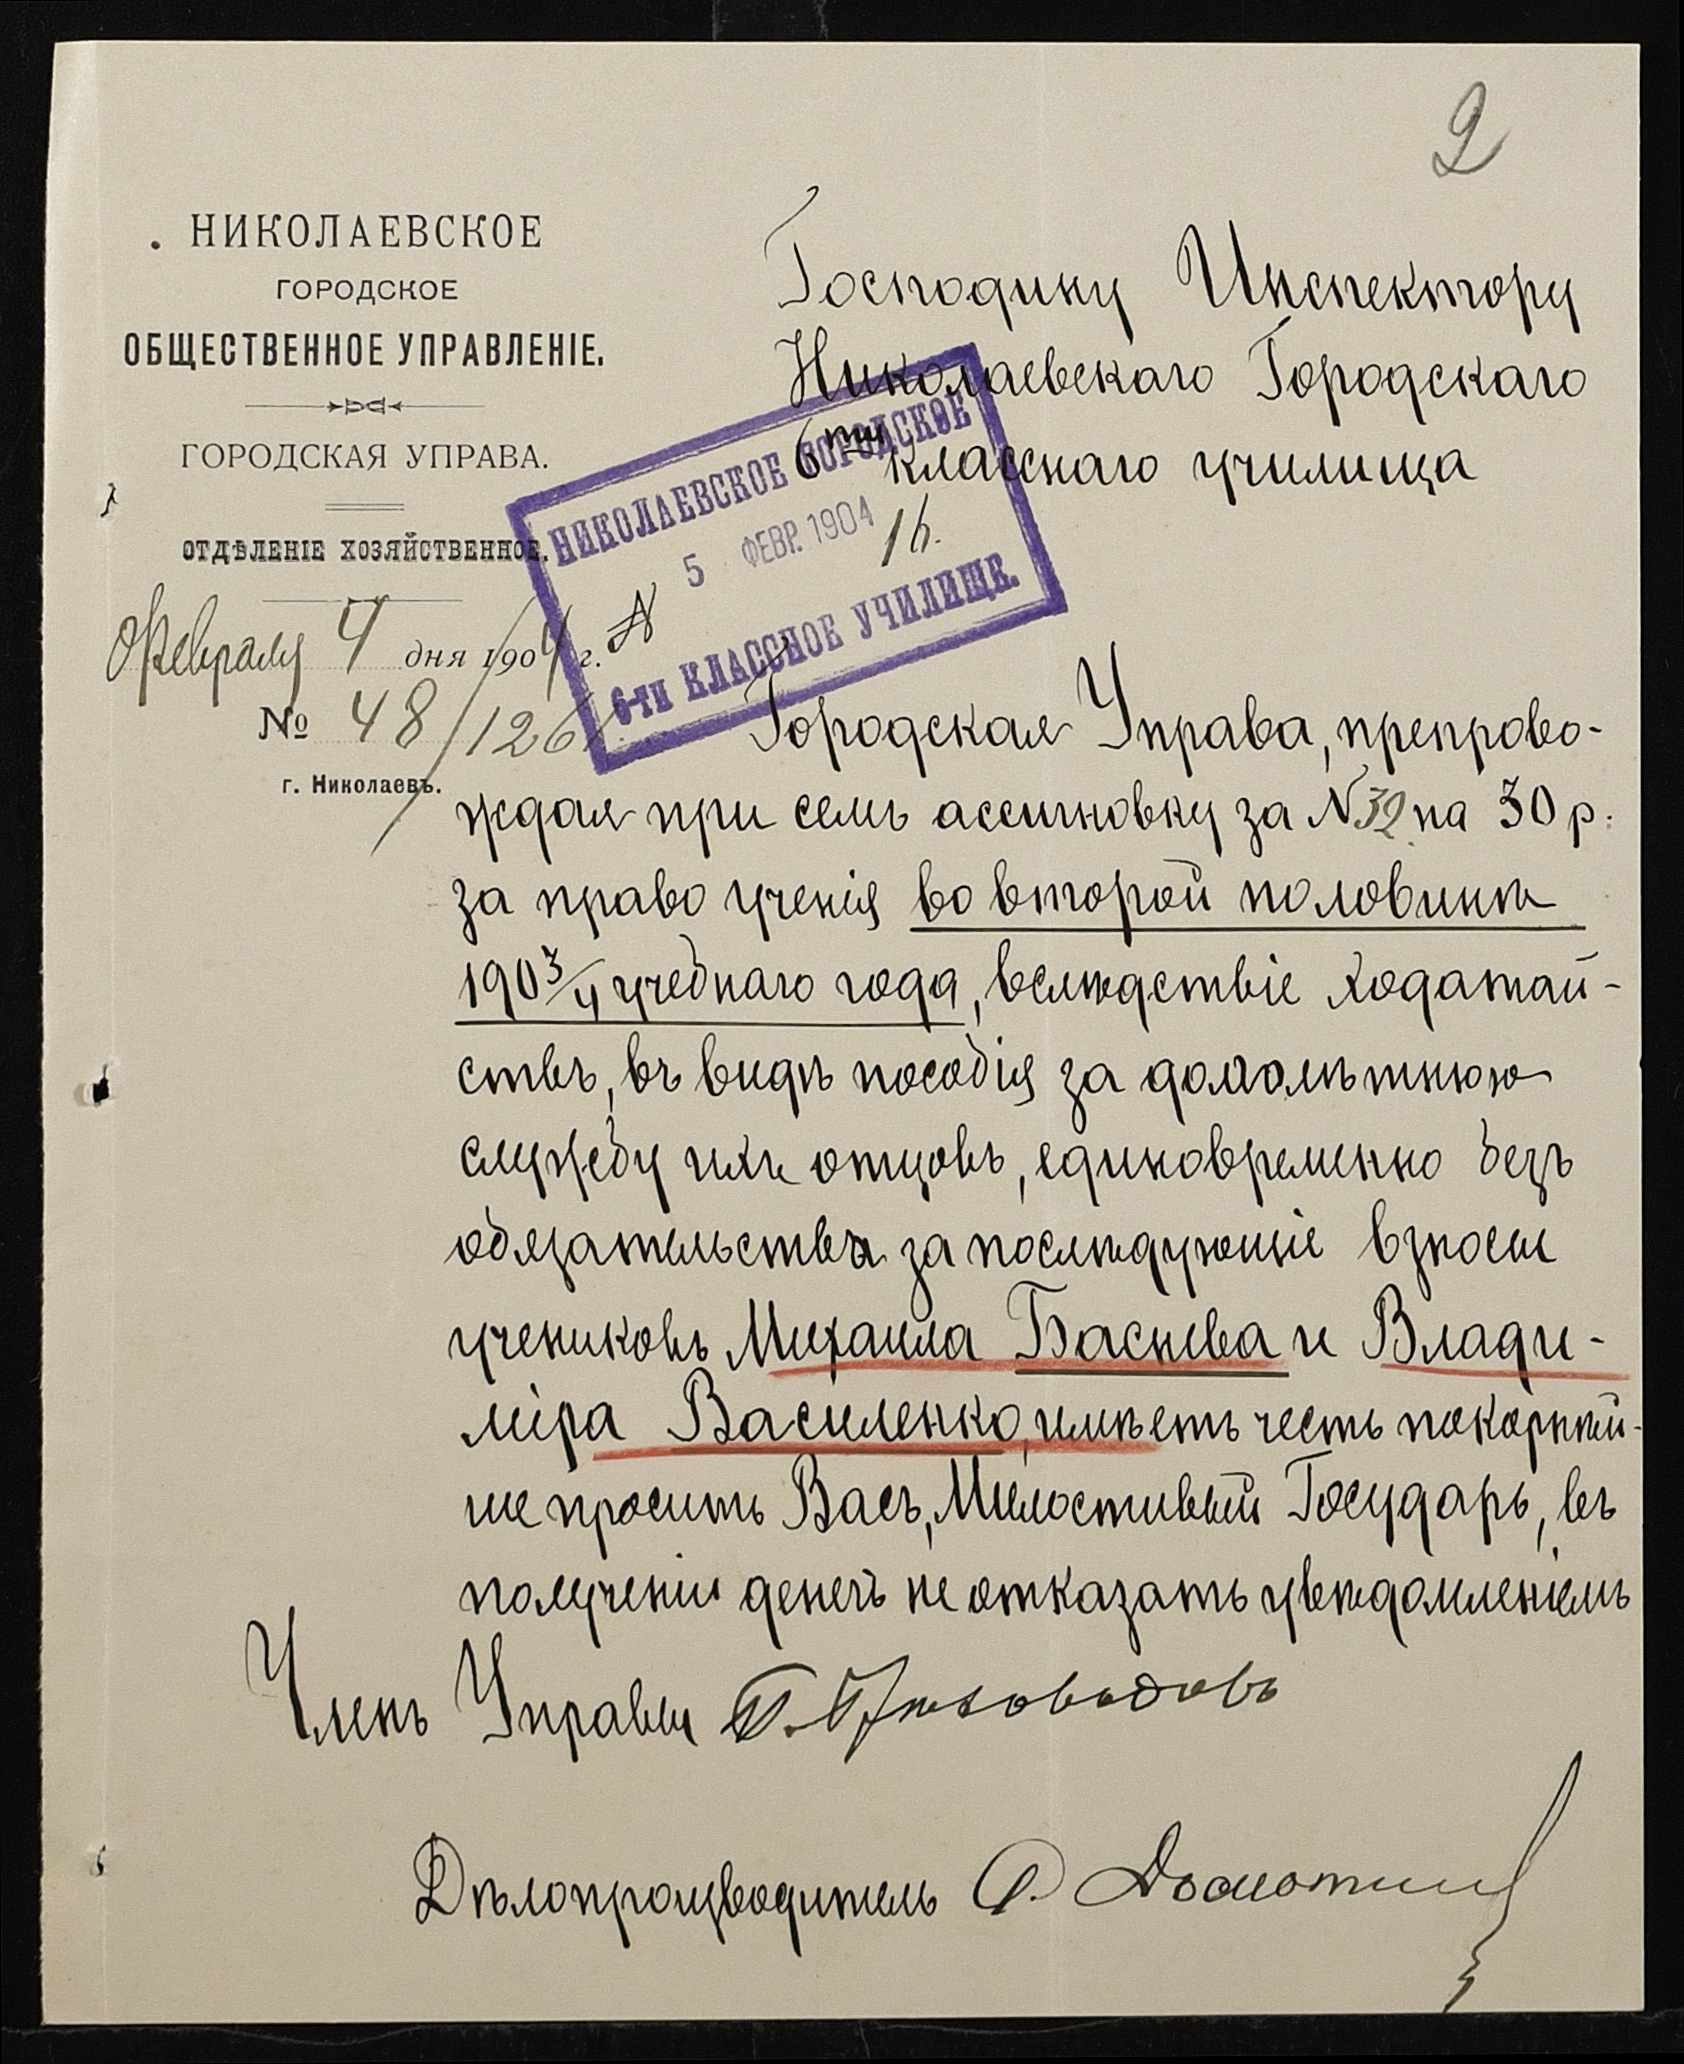 2
НИКОЛАЕВСКОЕ
ГОРОДСКОЕ
ОБЩЕСТВЕННОЕ УПРАВЛЕНІЕ.
ГОРОДСКАЯ УПРАВА.
ОТДѢЛЕНІЕ ХОЗЯЙСТВЕННОЕ.
Февраля 4 дня 1904 г.
№ 48/1261
г. Николаевъ.
Господину Инспектору
Николаевскаго Городскаго
6ти класснаго училища
НИКОЛАЕВСКОЕ ГОРОДСКОЕ
5 ФЕВР. 1904
N 16.
6-ти КЛАССНОЕ УЧИЛИЩЕ.
Городская Управа, препрово-
ждая при семъ ассигновку за N 32 на 30 р.
за право ученія во второй половинѣ
1903/4 учебнаго года, вслѣдствіе ходатай-
ствъ, въ видѣ пособія за долголѣтнюю
службу ихъ отцовъ, единовременно безъ
обязательства за послѣдующіе взносы
учениковъ Михаила Баснева и Влади-
міра Василенко, имѣетъ честь покорнѣй-
ше просить Васъ, Милостивый Государь, въ
полученіи денегъ не отказать увѣдомленіемъ
Членъ Управы
Дѣлопроизводитель